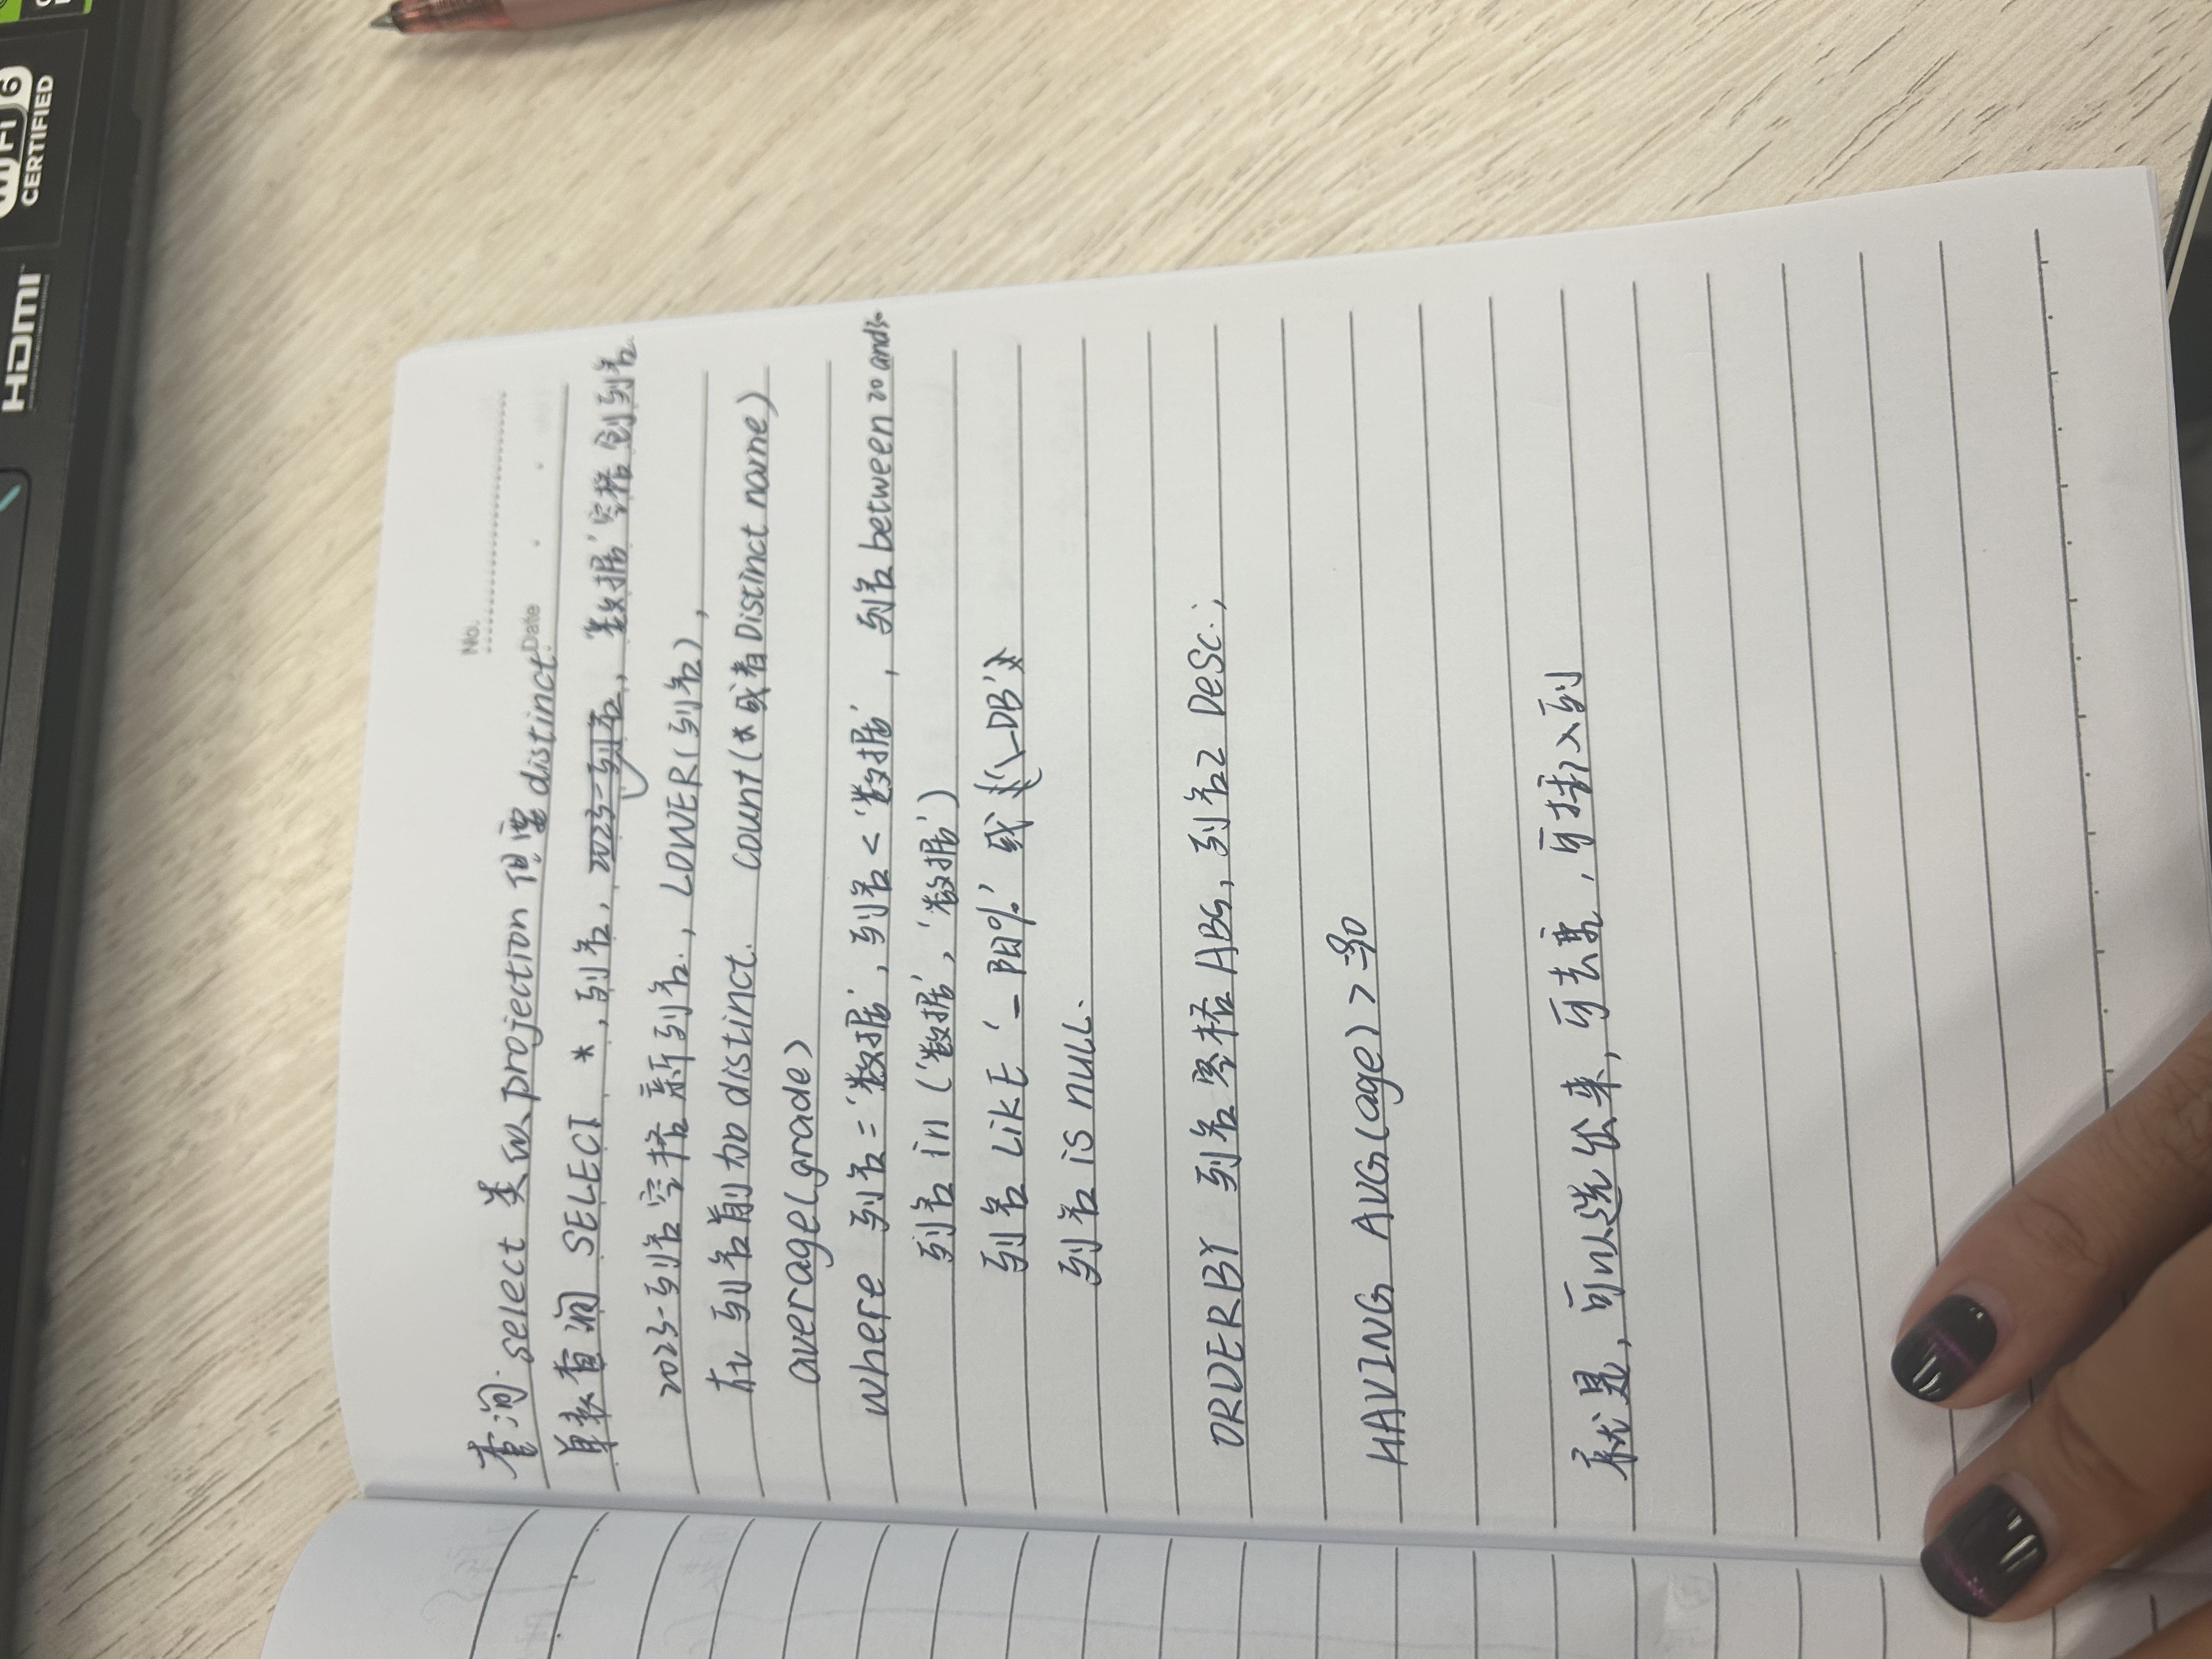 HDMI
Wi Fi 6
CERTIFIED
No.
Date
查询 select 类似 projection 但要 distinct.
单表查询 SELECT *, 列名, 2023-列名, '数据' 空格 列名
2023-列名 空格 新列名., LOWER(列名),
在 列名前加 distinct. count(*或者Distinct name)
average(grade)
where 列名='数据', 列名<'数据', 列名 between 20 and 30
列名 in ('数据', '数据')
列名 LiKE '_阳%' 或 '\_DB'
列名 is null.
ORDER BY 列名 空格 ABS, 列名2 DeSC.;
HAVING AVG(age) >
就是, 可以选出来, 可去重, 可插入列